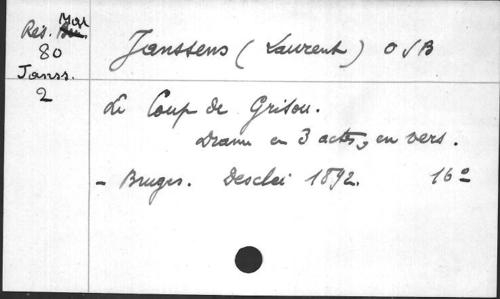 Res.
80
Janss.
2
Janssens (Laurent) OSB
Le Coup de Grisou.
Drame en 3 actes, en vers.
- Bruges. Desclée 1892. 16°